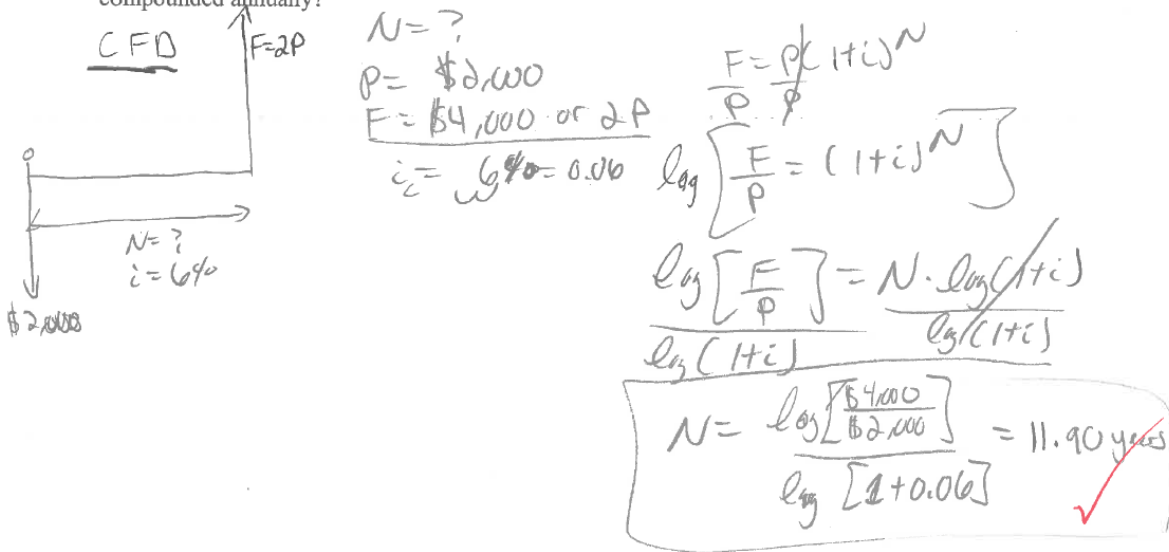 compounded annually?
CFD
F=2P
0
N= ?
i= 6%
$2,000
N= ?
P= $2,000
F= $4,000 or 2P
i = 6% = 0.06
F/P = P(1+i)^N/P
log [F/P = (1+i)^N]
log [F/P] / log (1+i) = N · log (1+i) / log (1+i)
N= log [$4,000/$2,000] / log [1+0.06] = 11.90 years